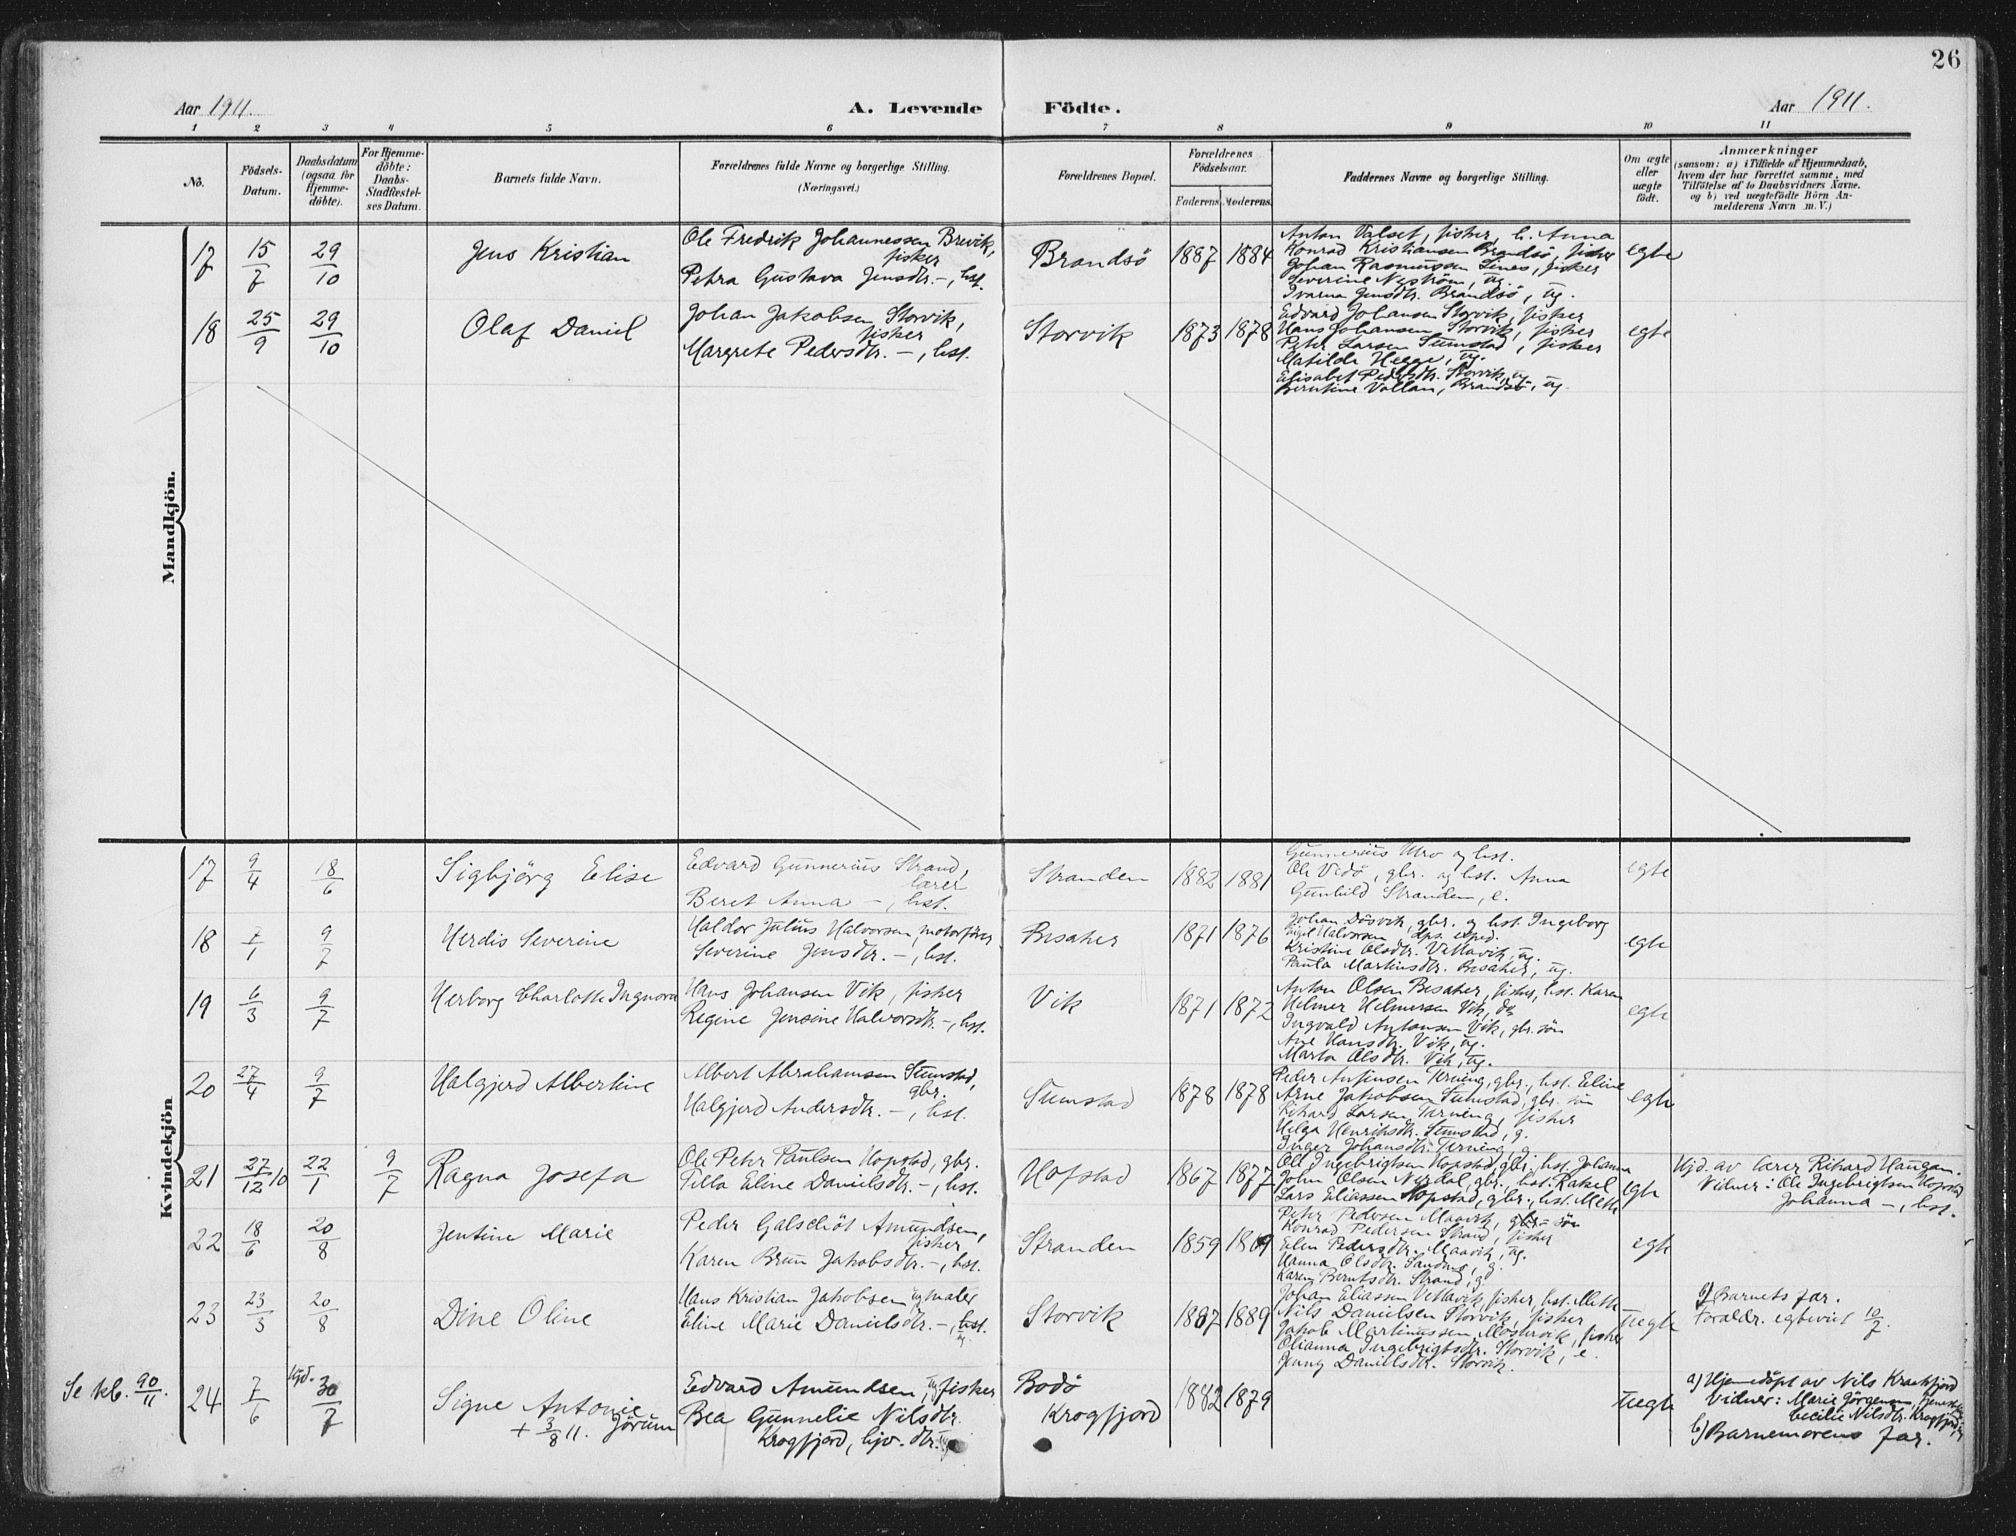 26
Aar 1911. A. Levende Födte. Aar 1911.
1 2 3 4 5 6 7 8 9 10 11
No.
Födsels-Datum.
Daabsdatum (ogsaa for Hjemme-döbte).
For Hjemme-döbte: Daabs-Stadfæstel-ses Datum.
Barnets fulde Navn.
Forældrenes fulde Navne og borgerlige Stilling.
(Næringsvei.)
Forældrenes Bopæl.
Forældrenes Födselsaar.
Faderens. Moderens.
Faddernes Navne og borgerlige Stilling.
Om ægte eller uægte födt.
Anmærkninger
(saasom: a) i Tilfælde af Hjemmedaab,
hvem der har forrettet samme, med
Tilföielse af to Daabsvidners Navne,
og b) ved uægtefödte Börn An-
melderens Navn m. V.)
Mandkjön.
17 15/7 29/10 Jens Kristian
Ole Fredrik Johannessen Brevik,
fisker
Petra Gustava Jensdtr. –, hst.
Brandsö 1887 1884
Anton Valset, fisker, h. Anna
Konrad Kristiansen Brandsö, fisker
Johan Rasmussen Sines, fisker
Severine Nyström, ug.
Ivarna Jensdtr. Brandsö, ug.
egte
18 25/9 29/10 Olaf Daniel
Johan Jakobsen Storvik,
fisker
Margrete Pedersdtr. –, hst.
Storvik 1873 1878
Edvard Johansen Storvik, fisker
Hans Johansen Storvik, fisker
Peter Larsen Sumstad, fisker
Matilde Hegge, ug.
Elisabet Pedersdtr. Storvik, ug
Berntine Vollan, Brandsö, ug
egte
Kvindekjön
17 9/4 18/6 Sigbjörg Elise
Edvard Gunnerius Strand,
lærer
Beret Anna –, hst.
Stranden 1882 1881
Gunnerius Utro og hst.
Ole Vedö, gbr. og hst. Anna
Gunhild Stranden, e.
egte
18 7/1 9/7 Herdis Severine
Haldor Julius Halvorsen, motorförer
Severine Jensdtr. –, hst.
Besaker 1871 1876
Johan Dösvik, gbr. og hst. Ingeborg
Sigil Halvorsen dps. exped.
Kristine Olsdtr. Vettavik, ug.
Paula Martinsdtr. Besaker, ug.
egte
19 6/3 9/7 Herborg Charlotte Ingnora
Hans Johansen Vik, fisker
Regine Jensine Halvorsdtr. –, hst.
Vik 1871 1872
Anton Olsen Besaker, fisker, hst. Karen
Helmer Helmersen Vik, do
Ingvald Antonsen Vik, gbr. sön
Ane Hansdtr. Vik, ug.
Marta Olsdtr. Vik, ug.
egte
20 27/4 9/7 Halgjerd Albertine
Albert Abrahamsen Sumstad,
gbr.
Halgjerd Andersdtr. –, hst.
Sumstad 1878 1878
Peder Antonsen Terning, gbr., hst. Eline
Arne Jakobsen Sumstad, gbr. sön
Rikard Larsen Tarning, fisker
Helga Henriksdtr. Sumstad, g.
Inger Johansdtr. Terning, g.
egte
21 27/12 10 22/1 9/7 Ragna Josefa
Ole Peter Paulsen Hopstad, gbr.
Pella Eline Danielsdtr. –, hst.
Hofstad 1867 1877
Ole Ingebrigtsen Hopstad, gbr., hst. Johanna
John Olsen Nerdal, gbr., hst. Rakel
Lars Eliassen Hopstad, gbr., hst. Mette
egte
Hjd. av lærer Rikard Haugan.
Vidner: Ole Ingebrigtsen Hopstad
Johanna –, hst.
22 18/6 20/8 Jentine Marie
Peder Galschöt Amundsen,
fisker
Karen Brun Jakobsdtr. –, hst.
Stranden 1859 1869
Peter Pedersen Maavik, gbr-sön
Konrad Pedersen Strand, fisker
Elen Pedersdtr. Maavik, ug.
Hanna Olsdtr. Sandnes, g.
Karen Berntsdtr. Strand, g
egte
23 23/3 20/8 Dine Oline
Hans Kristian Jakobsen ug maler
Eline Marie Danielsdtr. –, hst.
ug
Storvik 1887 1889
Johan Eliassen Vettavik, fisker, hst. Mette
Nils Danielsen Storvik, fisker
Jakob Martinussen Mostervik, fisker
Olianna Ingebrigtsdtr. Storvik, e.
Jenny Danielsdtr. Storvik.
uegte
b) Barnets far.
Foraldr. egteviet 10/7.
Se kb. 90/11.
24 7/6 hjd. 30/7 Signe Antonie
+ 3/8 11. Jörum
Edvard Amundsen, ug fisker
Bea Gunnelie Nilsdtr.
Krogfjord, hjv. dtr. ug
Bodö
Krogfjord
1882 1879
uegte
a) Hjemedöpt av Nils Krakfjord
Vidner: Marie Jörgensen, tjenest.
Cecilie Nilsdtr. Krogfjord
b) Barnemorens far.